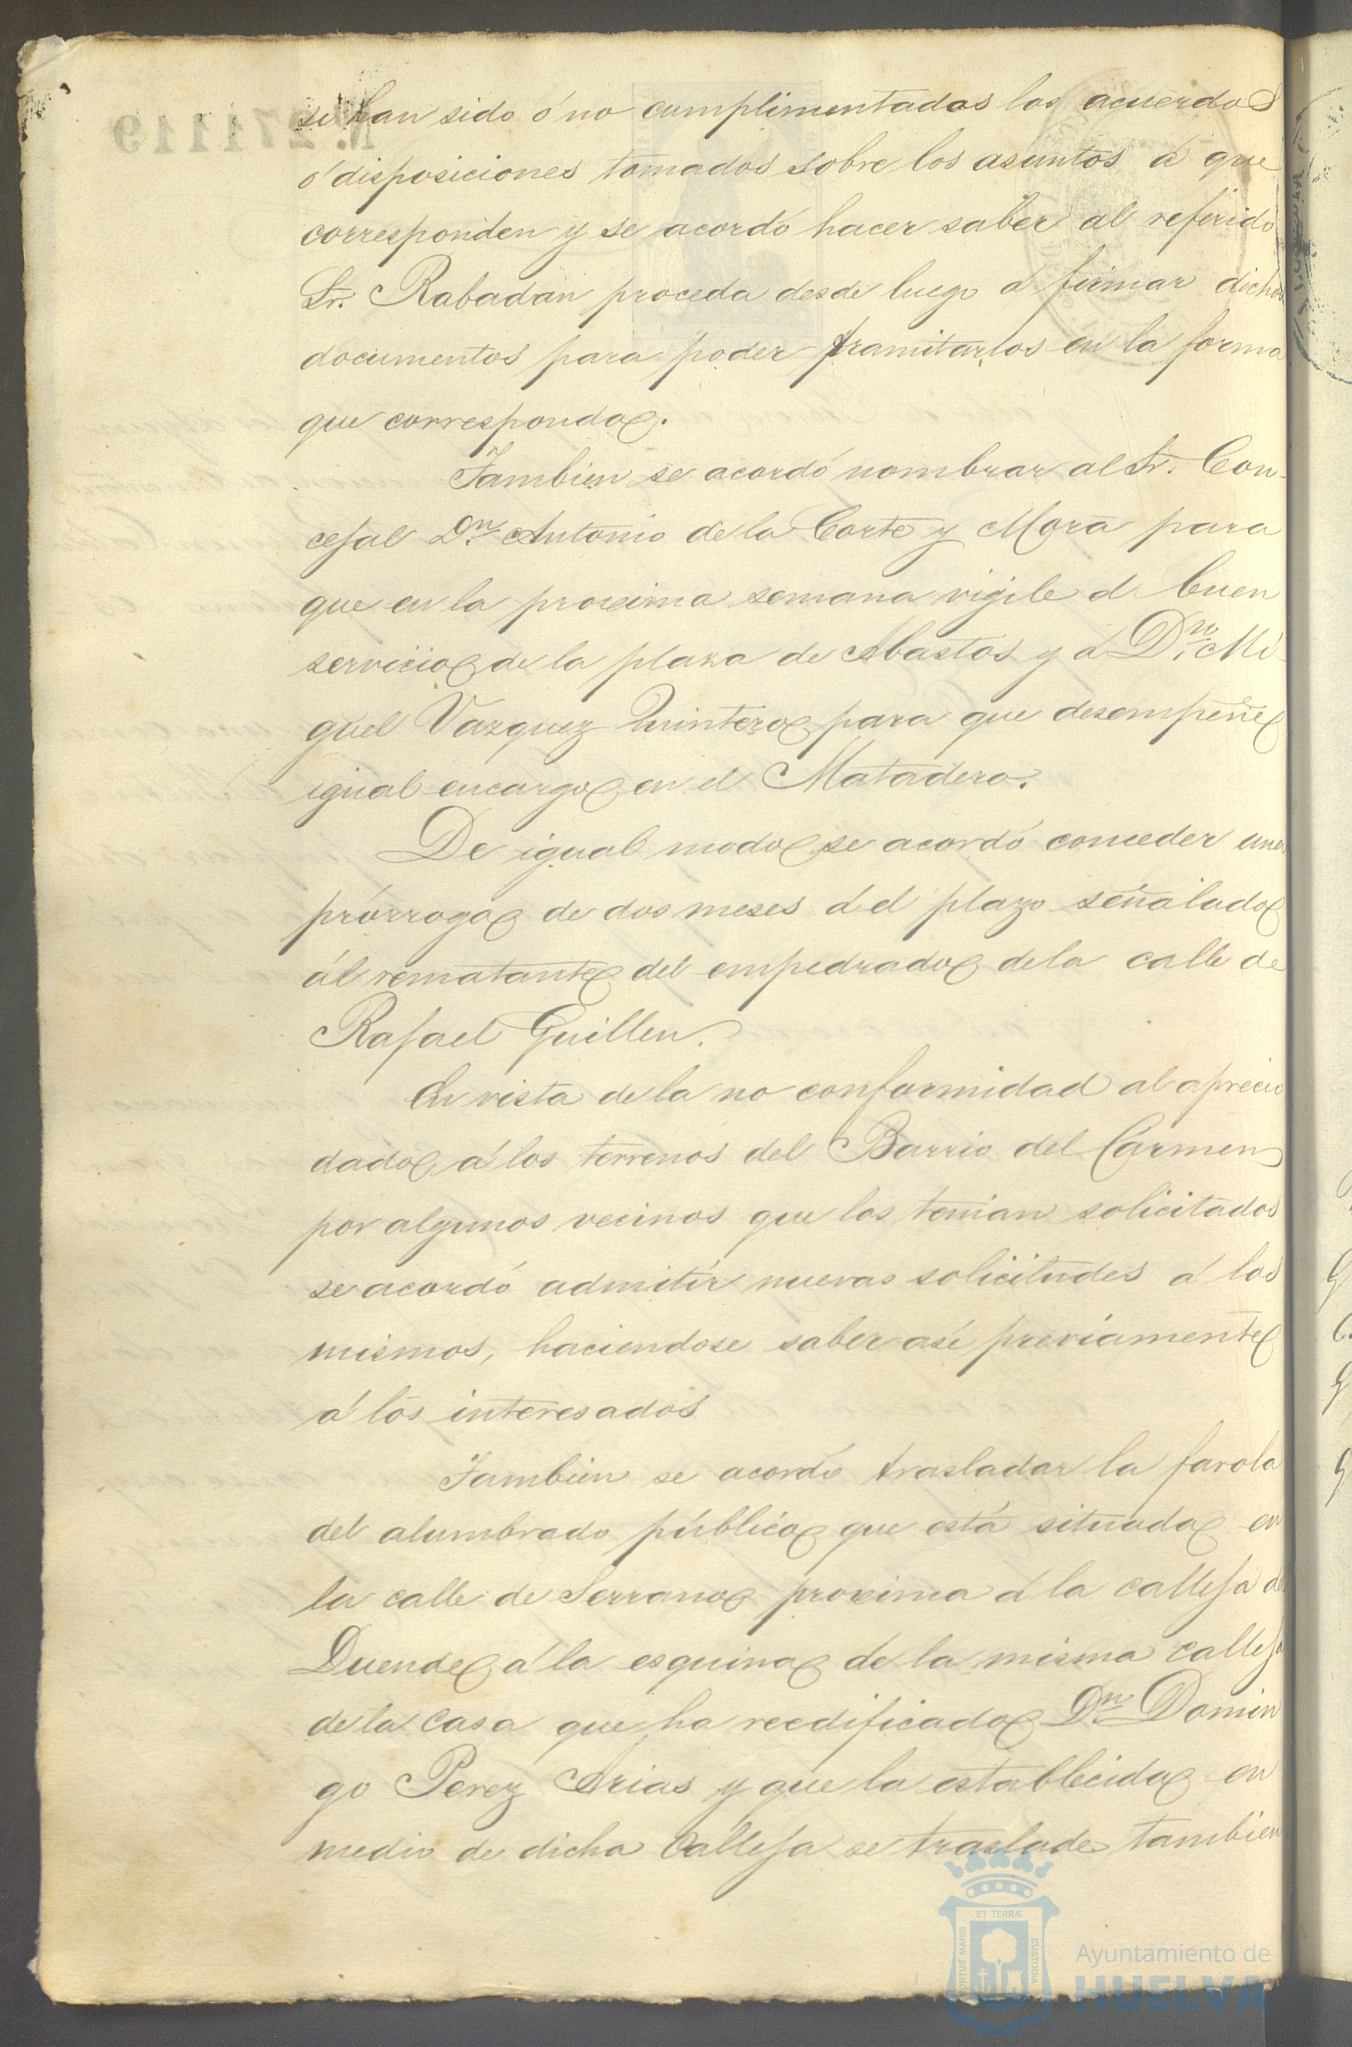 si han sido ó no cumplimentados los acuerdos
ó disposiciones tomados sobre los asuntos á que
corresponden y se acordó hacer saber al referido
Sr. Rabadan proceda desde luego á firmar dichos
documentos para poder tramitarlos en la forma
que corresponda.
Tambien se acordó nombrar al Sr. Con-
cejal Dn. Antonio de la Corte y Mora para
que en la proxima semana vigile el buen
servicio de la plaza de Abastos y á Dn. Mi-
guel Vazquez Quintero para que desempeñe
igual encargo en el Matadero.
De igual modo se acordó conceder una
prórroga de dos meses á el plazo señalado
ál rematante del empedrado de la calle de
Rafael Guillen.
En vista de la no conformidad al aprecio
dado á los terrenos del Barrio del Carmen
por algunos vecinos que los tenian solicitados
se acordó admitir nuevas solicitudes á los
mismos, haciendose saber asi previamente
á los interesados
Tambien se acordó trasladar la farola
del alumbrado público que está situada en
la calle de Serrano proxima á la calleja del
Duende á la esquina de la misma calleja
de la casa que ha reedificado Dn. Domin
go Perez Arias y que la establecida en
medio de dicha Calleja se traslade tambien
Nº. 271119
PORTUS MARIS ET TERRÆ CUSTODIA
Ayuntamiento de
HUELVA